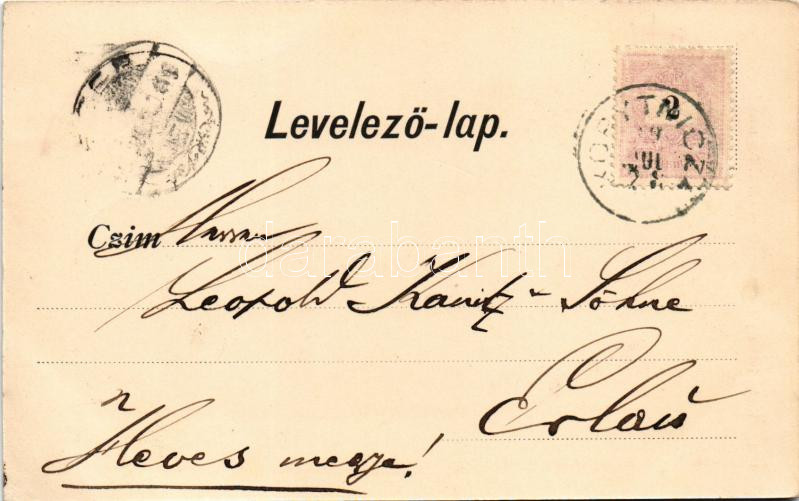 Levelező-lap.
2
KORYTNICZA
Czim Herren
Leopold Kanitz Söhne
Erlau
Heves megye!
darabanth